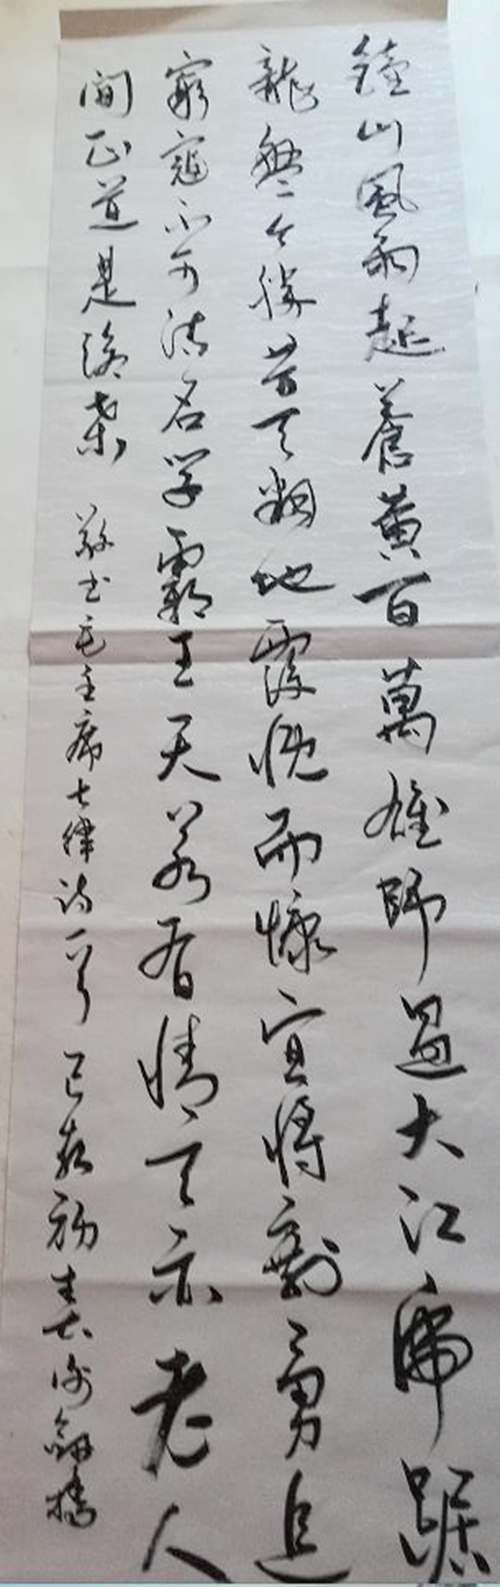 鐘山風雨起蒼黃百萬雄師過大江虎踞
龍盤今勝昔天翻地覆慨而慷宜將剩勇追
窮寇不可沽名學霸王天若有情天亦老人
間正道是滄桑 敬書毛主席七律詩一首 己亥初